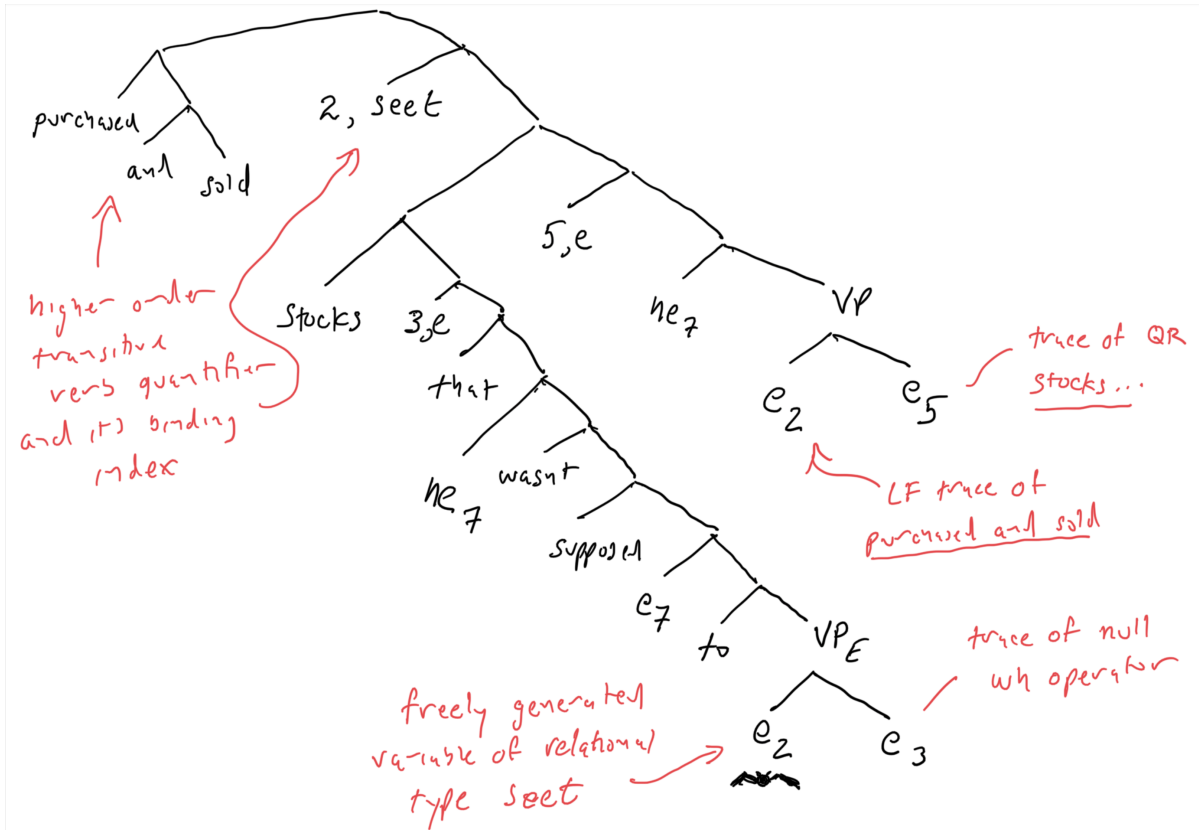 purchased
and
sold
2, seet
stocks
3,e
that
he7
wasnt
supposed
e7
to
VPE
e2
e3
5,e
he7
VP
e2
e5
higher order
transitive
verb quantifier
and its binding
index
trace of QR
stocks...
LF trace of
purchased and sold
trace of null
wh operator
freely generated
variable of relational
type seet